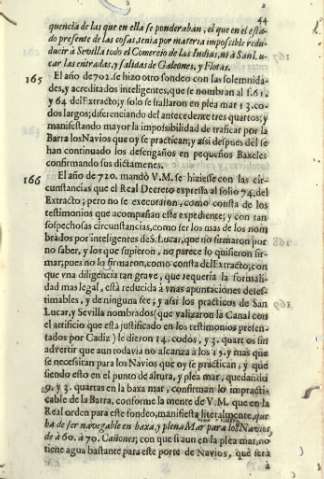 44
quencia de las que en ella se ponderaban, el que en el esta-
do presente de las cosas, tenia por materia impossible redu-
ducir à Sevilla todo el Comercio de las Indias, ni à SanLu-
car las entradas, y salidas de Galeones, y Flotas.
165 El año de 702. se hizo otro fondeo con las solemnida-
des, y acreditados inteligentes, que se nombran al f. 61.
y 64 del Extracto; y solo se hallaron en plea mar 13. co-
dos largos; diferenciando del antecedente tres quartos; y
manifestando mayor la impossibilidad de traficar por la
Barra los Navios que oy se practican; y assi despues dèl se
han continuado los desengaños en pequeños Baxeles
confirmando sus dictamenes.
166 El año de 720. mandò V.M. se hiziesse con las cir-
cunstancias que el Real Decreto expressa al folio 74. del
Extracto; pero no se executaron, como consta de los
testimonios que acompañan este expediente; y con tan
sospechosas circunstancias, como ser los mas de los nom
brados por inteligentes de S. Lucar, que no firmaron por
no saber, y los que supieron, no parece lo quisieron fir-
mar, pues no lo firmaron, como consta del Extracto; con
que vna diligencia tan grave, que requeria la formali-
dad mas legal, està reducida à vnas apuntaciones desesti-
timables, y de ninguna fee; y assi los practicos de San
Lucar, y Sevilla nombrados (que valizaron la Canal con
el artificio que està justificado en los testimonios presen-
tados por Cadiz) le dieron 14. codos, y 3. quartos sin
advertir que aun todavia no alcanza à los 15. y mas que
se necessitan para los Navios que oy se practican, y que
siendo esto en el punto de altura, y plea mar, quedan en
9. y 3. quartas en la baxa mar, confirman lo impracti-
cable de la Barra, conforme la mente de V.M. que en la
Real orden para este fondeo, manifiesta literalmente, que
ha de ser navegable en baxa, y plena Mar para los Navios
de à 60. à 70. Cañones; con que si aun en la plea mar, no
tiene agua bastante para este porte de Navios, què serà
à